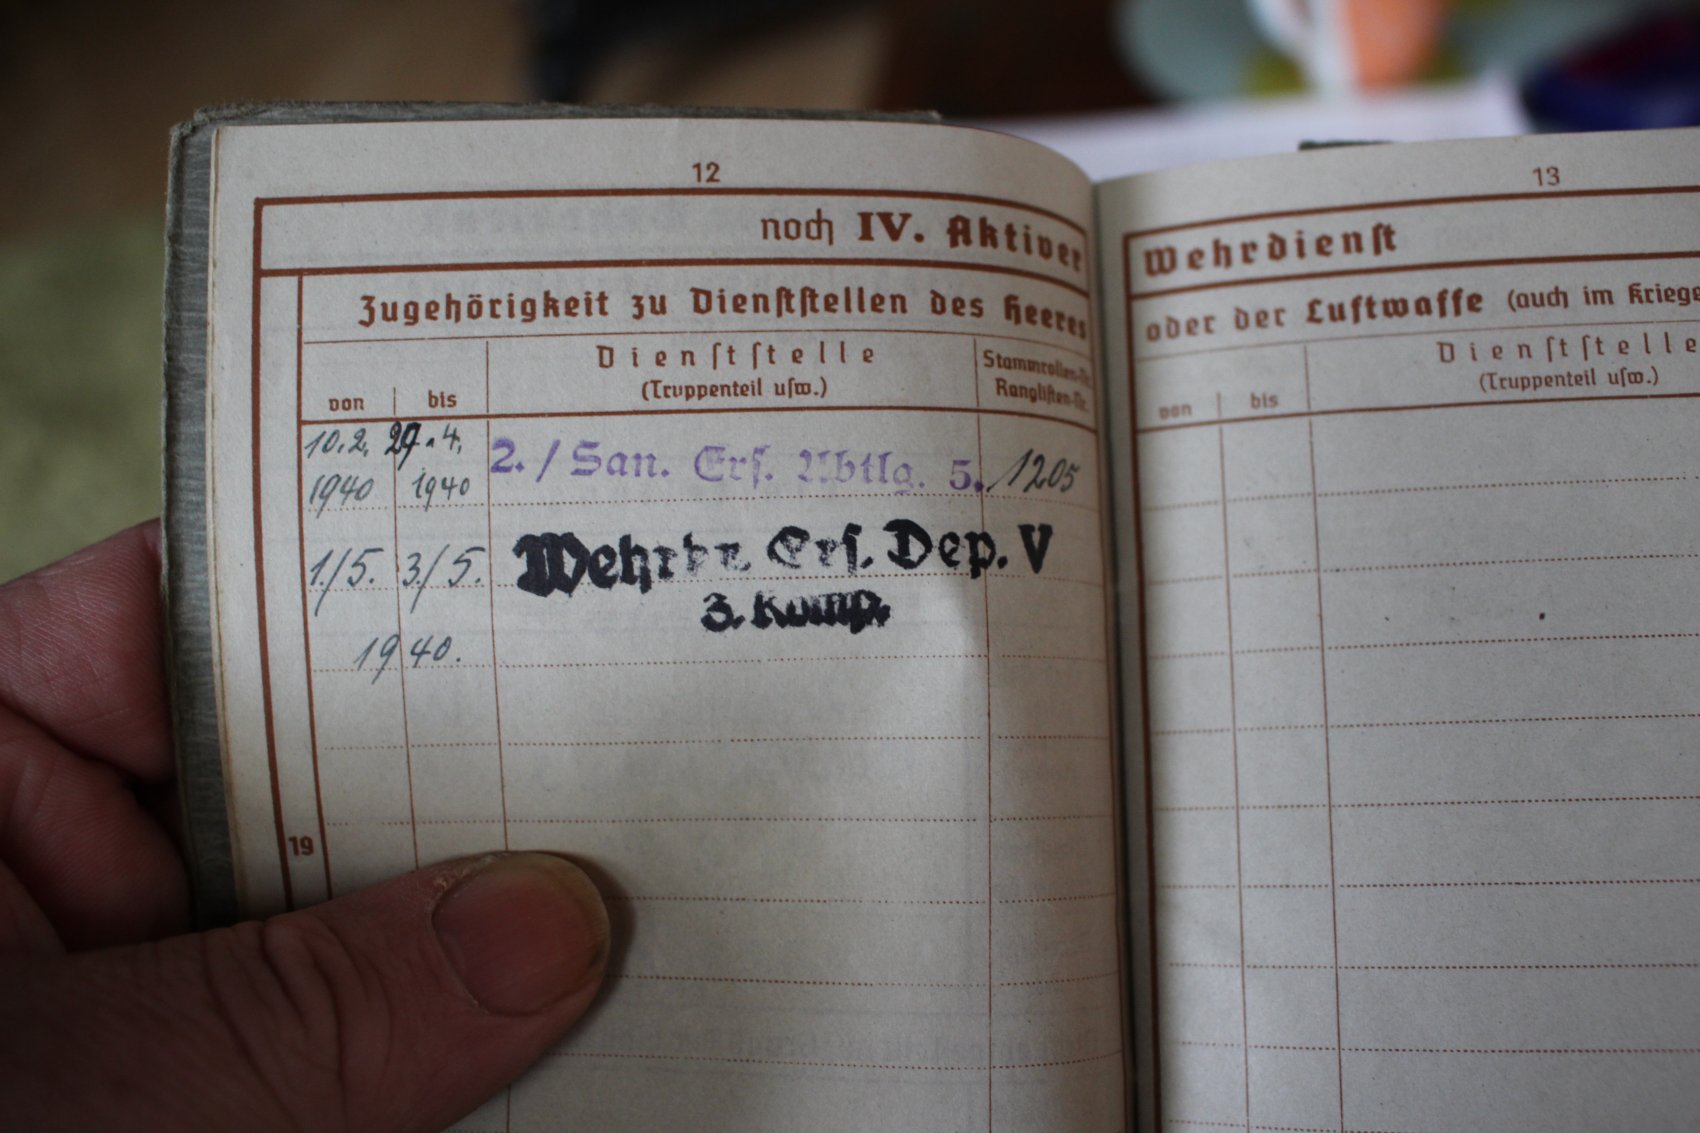 12
noch IV. Aktiver
Zugehörigkeit zu Dienststellen des Heeres
von
bis
Dienststelle
(Truppenteil usw.)
Stammrollen-Nr.
Ranglisten-Nr.
10.2. 29.4. 2./San. Ers. Abtlg. 5. 1205
1940 1940
1./5. 3./5. Wehrbz. Ers. Dep. V
3. Komp.
1940.
19
13
Wehrdienst
oder der Luftwaffe (auch im Kriege
von
bis
Dienststelle
(Truppenteil usw.)